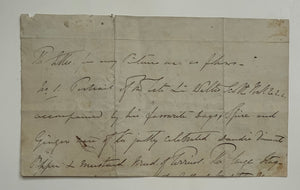 The titles in my Picture are as follows
No 1. Portrait of the late Sir Walter Scott Bart
accompanied by his favorite dogs, Spice and
Ginger of the justly celebrated dandie dinmont
Pepper & mustard breed of Terriers. The large